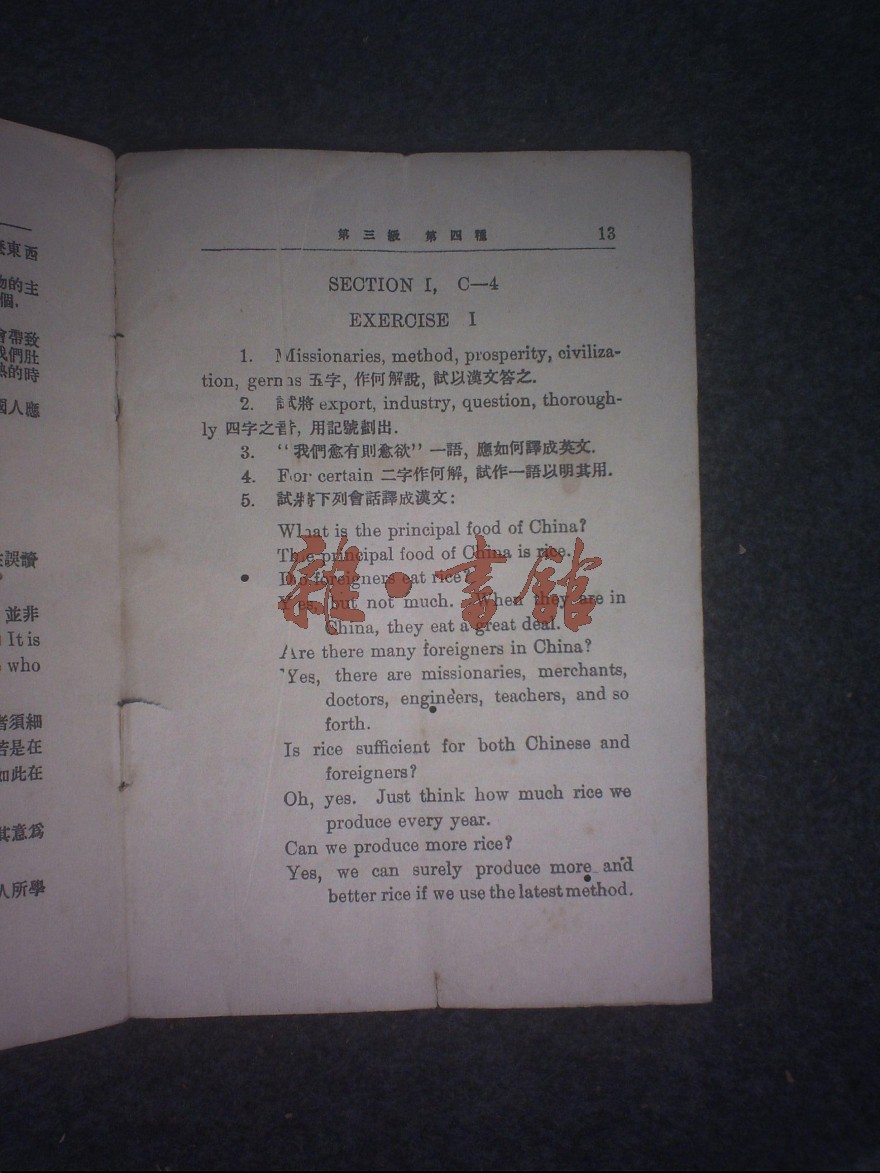 東西
物的主
個.
會帶致
我們肚
熱的時
國人應
誤讀
並非
It is
who
者須細
若是在
如此在
其意爲
人所學
第三級 第四種 13
SECTION I, C—4
EXERCISE I
1. Missionaries, method, prosperity, civiliza-
tion, germs 五字, 作何解說, 試以漢文答之.
2. 試將 export, industry, question, thorough-
ly 四字之音, 用記號劃出.
3. “我們愈有則愈欲” 一語, 應如何譯成英文.
4. For certain 二字作何解, 試作一語以明其用.
5. 試將下列會話譯成漢文:
What is the principal food of China?
The principal food of China is rice.
Do foreigners eat rice?
Yes, but not much. When they are in
China, they eat a great deal.
Are there many foreigners in China?
Yes, there are missionaries, merchants,
doctors, engineers, teachers, and so
forth.
Is rice sufficient for both Chinese and
foreigners?
Oh, yes. Just think how much rice we
produce every year.
Can we produce more rice?
Yes, we can surely produce more and
better rice if we use the latest method.
雜·書館